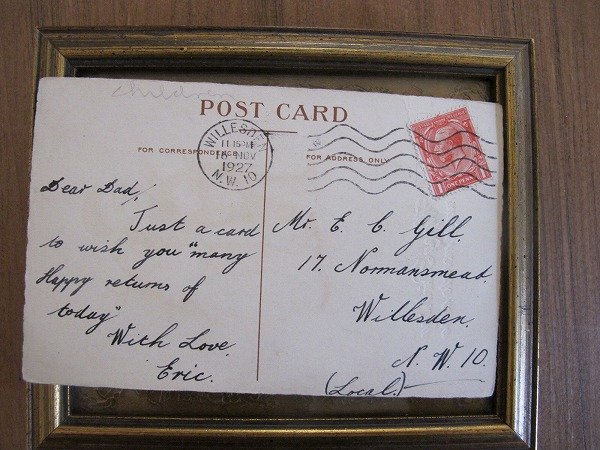 children
POST CARD
WILLESDEN
11 15 PM
16 NOV
1927
N.W.10
FOR CORRESPONDENCE
FOR ADDRESS ONLY
ONE PENNY
Dear Dad,
Just a card
to wish you "many
Happy returns of
today"
With Love.
Eric.
Mr. E. C. Gill.
17. Normansmead.
Willesden.
N. W. 10.
(Local.)